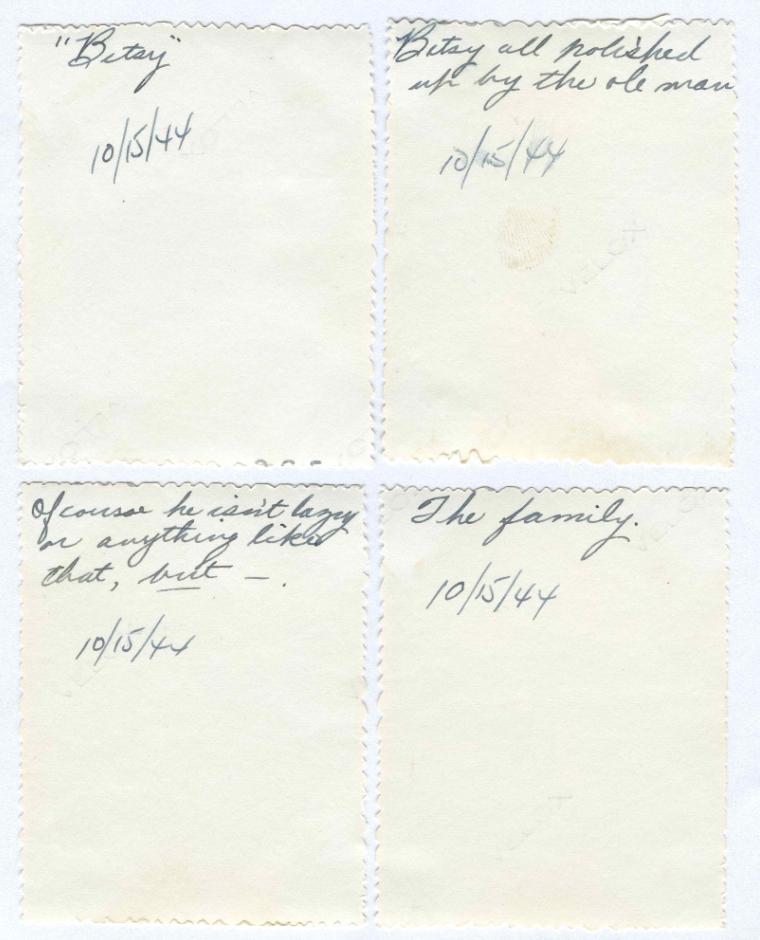 "Betsy"
10/15/44
Betsy all polished
up by the ole man
10/15/44
VELOX
Of course he isn't lazy
or anything like
that, but – .
10/15/44
The family.
10/15/44